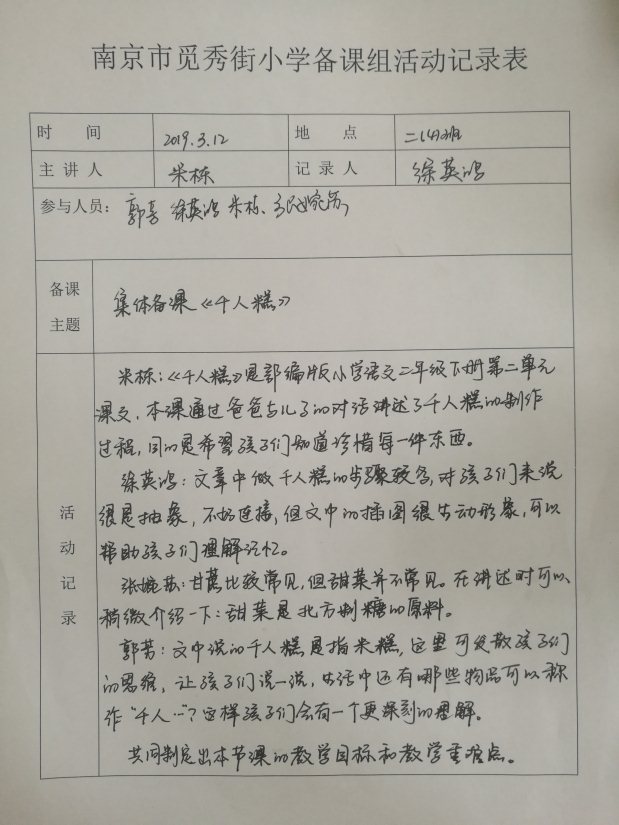 南京市觅秀街小学备课组活动记录表
时 间 2019.3.12 地 点 二(4)班
主 讲 人 米栋 记 录 人 徐英鸿
参与人员: 郭芳 徐英鸿 米栋、
备课
主题
集体备课《千人糕》
活
动
记
录
米栋:《千人糕》是部编版小学语文二年级下册第二单元
课文,本课通过爸爸与儿子的对话讲述了千人糕的制作
过程,目的是希望孩子们知道珍惜每一件东西。
徐英鸿:文章中做千人糕的步骤较多,对孩子们来说
很是抽象,不好连接,但文中的插图很生动形象,可以
帮助孩子们理解记忆。
张婉茹:甘蔗比较常见,但甜菜并不常见。在讲述时可以
稍微介绍一下:甜菜是北方制糖的原料。
郭芳:文中说的千人糕是指米糕,这里可发散孩子们
的思维,让孩子们说一说,生活中还有哪些物品可以称
作“千人…”?这样孩子们会有一个更深刻的理解。
共同制定出本节课的教学目标和教学重难点。